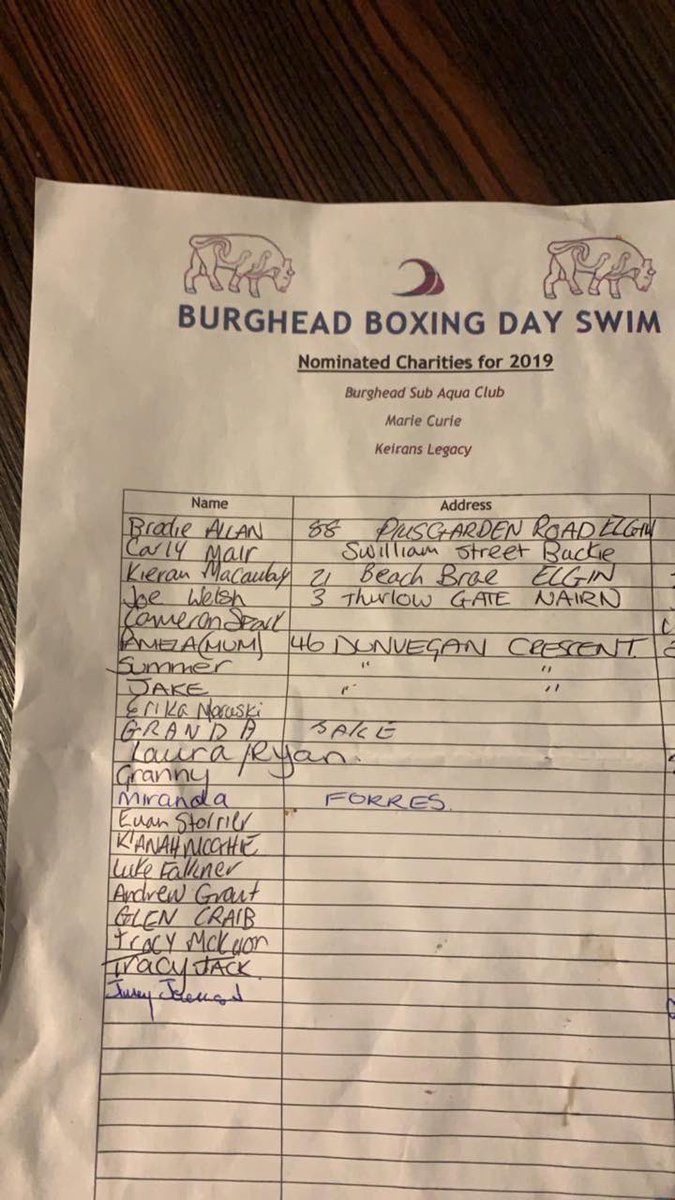 BURGHEAD BOXING DAY SWIM
Nominated Charities for 2019
Burghead Sub Aqua Club
Marie Curie
Keirans Legacy
Name Address
Brodie ALLAN 88 PLUSGARDEN ROAD ELGIN
Carly Mair 5william Street Buckie
Kieran Macaulay 21 Beach Brae ELGIN
Joe Welsh 3 Thurlow GATE NAIRN
Cameron
(MUM) 46 DUNVEGAN CRESCENT
Summer " "
JAKE " "
Erika
GRANDA JAKE
Laura/Ryan.
Granny
Miranda FORRES.
Euan
Luke Falkner
Andrew Grant
GLEN CRAIB
Tracy
Tracy JACK